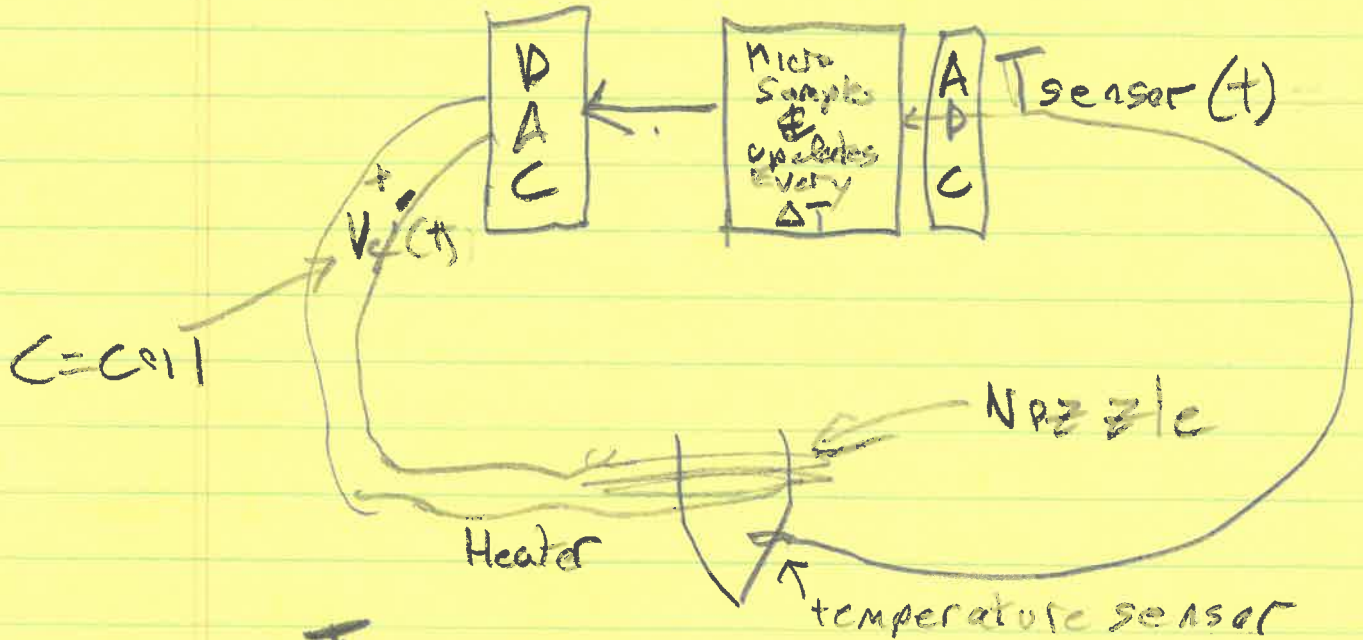 D
A
C
Micro
Samples
&
updates
Every
ΔT
A
D
C
Tsensor(t)
+
-
Vc(t)
C=Coil
Nozzle
Heater
temperature sensor